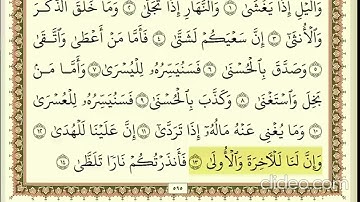 وَٱلَّيۡلِ إِذَا يَغۡشَىٰ ١ وَٱلنَّهَارِ إِذَا تَجَلَّىٰ ٢ وَمَا خَلَقَ ٱلذَّكَرَ
وَٱلۡأُنثَىٰٓ ٣ إِنَّ سَعۡيَكُمۡ لَشَتَّىٰ ٤ فَأَمَّا مَنۡ أَعۡطَىٰ وَٱتَّقَىٰ
٥ وَصَدَّقَ بِٱلۡحُسۡنَىٰ ٦ فَسَنُيَسِّرُهُۥ لِلۡيُسۡرَىٰ ٧ وَأَمَّا مَنۢ
بَخِلَ وَٱسۡتَغۡنَىٰ ٨ وَكَذَّبَ بِٱلۡحُسۡنَىٰ ٩ فَسَنُيَسِّرُهُۥ لِلۡعُسۡرَىٰ
١٠ وَمَا يُغۡنِي عَنۡهُ مَالُهُۥٓ إِذَا تَرَدَّىٰٓ ١١ إِنَّ عَلَيۡنَا لَلۡهُدَىٰ ١٢
وَإِنَّ لَنَا لَلۡأٓخِرَةَ وَٱلۡأُولَىٰ ١٣ فَأَنذَرۡتُكُمۡ نَارٗا تَلَظَّىٰ ١٤
٥٩٥
clideo.com